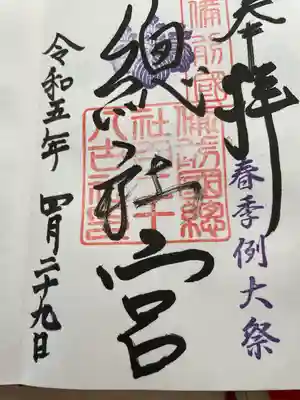 奉拝
春季例大祭
備前國
總社宮
令和五年 四月二十九日